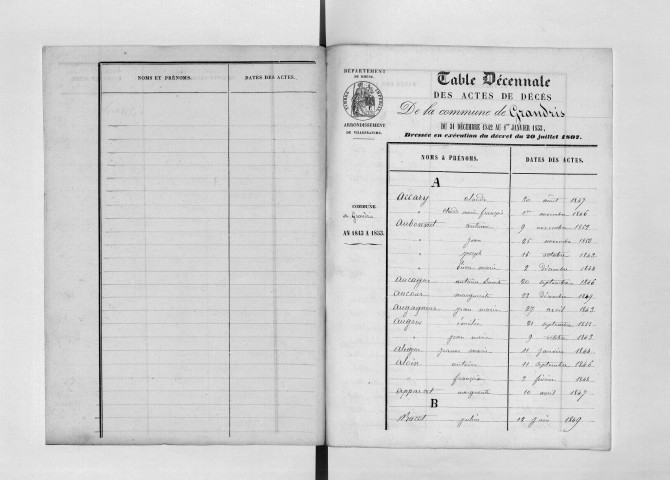 NOMS ET PRÉNOMS. DATES DES ACTES.
DÉPARTEMENT
DU RHÔNE.
ARRONDISSEMENT
DE VILLEFRANCHE.
COMMUNE
de Grandris
AN 1843 A 1853.
Table Décennale
DES ACTES DE DÉCÈS
De la commune de Grandris
DU 31 DÉCEMBRE 1842 AU 1er JANVIER 1853,
Dressée en exécution du décret du 20 juillet 1807.
NOMS & PRÉNOMS. DATES DES ACTES.
A
Accary claude 20 août 1847
" claude marie françois 1er novembre 1846
Aubonnet antoine 9 novembre 1852
" jean 25 novembre 1852
" joseph 16 octobre 1843
" marie 2 décembre 1844
antoine 20 septembre 1846
marguerite 22 décembre 1849
jean marie 27 avril 1843
21 septembre
" jean marie 9 octobre 1843
marie 11 janvier 1844
antoine 11 septembre 1846
" françois 2 février 1848
marguerite 10 avril 1847
B
18 juin 1849